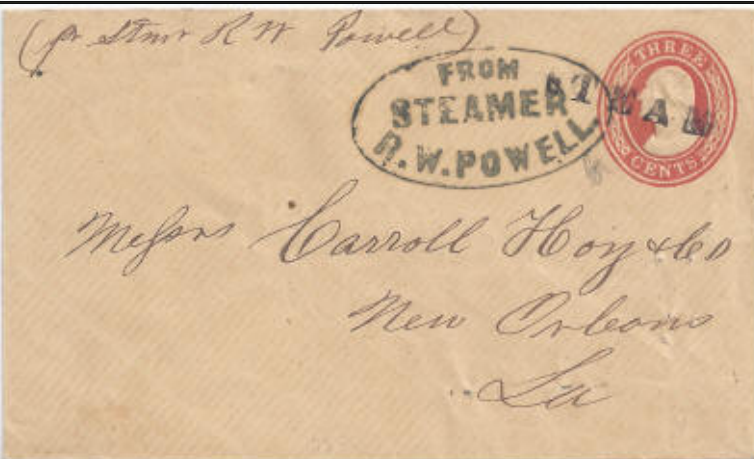 (pr Stmr R W Powell)
FROM
STEAMER
R.W.POWELL
STEAM
THREE
CENTS
Messrs Carroll Hoy & Co
New Orleans
La